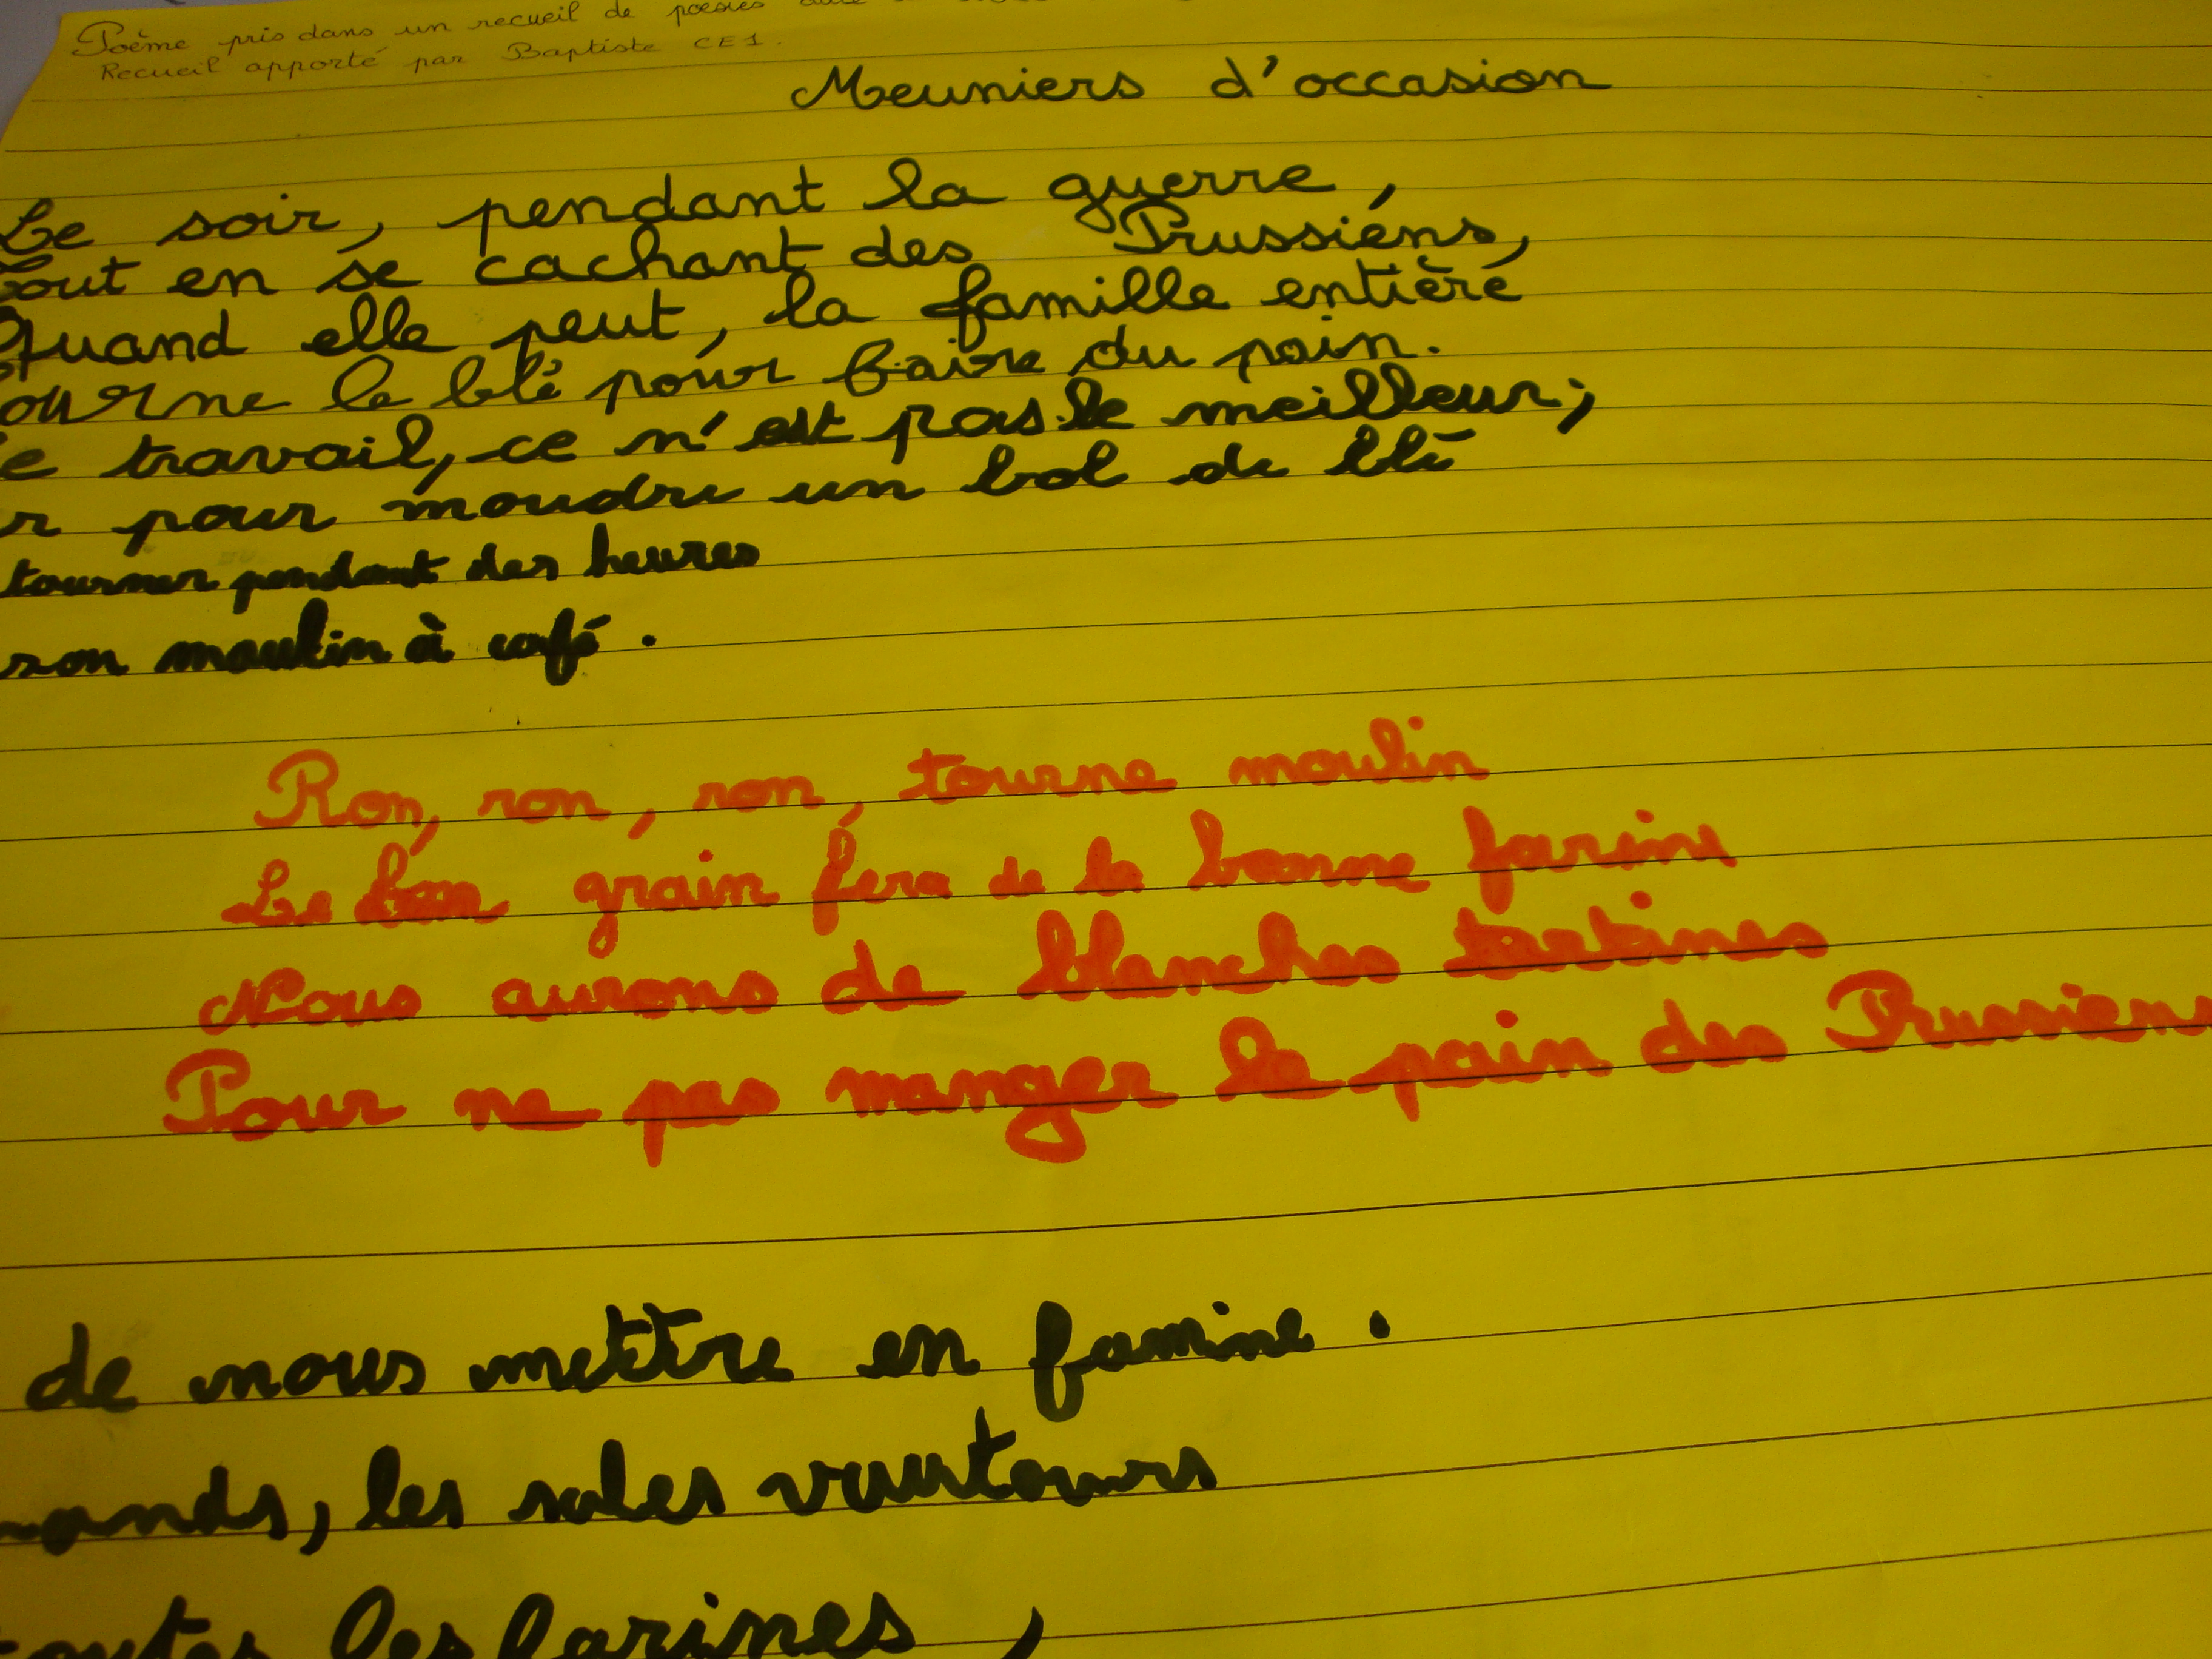 Poème pris dans un recueil de poésies
Recueil apporté par Baptiste CE1.
Meuniers d'occasion
Le soir, pendant la guerre,
Tout en se cachant des Prussiens,
Quand elle peut, la famille entière
ourne le blé pour faire du pain.
e travail, ce n'est pas le meilleur;
r pour moudre un bol de blé
tourner pendant des heures
son moulin à café.
Ron, ron, ron, tourne moulin
Le bon grain fera de la bonne farine
Nous aurons de blanches tartines
Pour ne pas manger le pain des Prussiens
de nous mettre en famine.
mands, les sales vautours
toutes les farines,